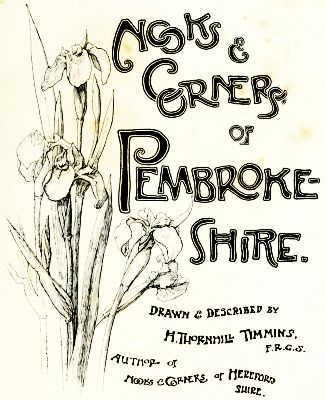 NOOKS &
CORNERS
OF
PEMBROKE-
SHIRE.
DRAWN & DESCRIBED BY
H. THORNHILL TIMMINS,
F.R.G.S.
AUTHOR OF
NOOKS & CORNERS OF HEREFORD
SHIRE.